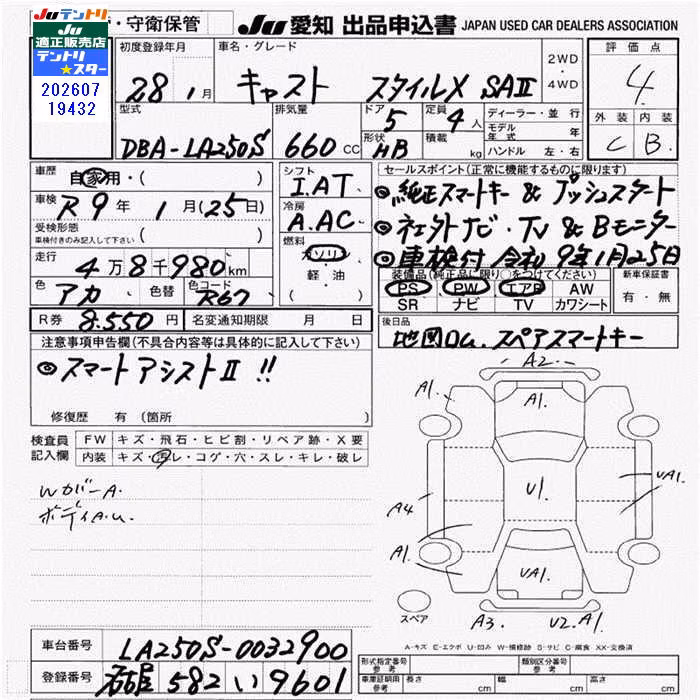 Juテントリ
適正販売店
テントリ
★スター
202607
19432
・守衛保管
Ju 愛知 出品申込書 JAPAN USED CAR DEALERS ASSOCIATION
初度登録年月 車名・グレード
28 1月 キャスト スタイルX SAⅡ
2WD・4WD
評価点
4
外装 内装
C B
型式 排気量 ドア 定員
DBA-LA250S 660cc 5 4人
形状 HB 積載 kg
ディーラー・並行
モデル年式 年
ハンドル 左・右
車歴 自家用・( )
車検 R9年 1月(25日)
受検形態 ( )
車検付きのみ記入して下さい
走行 4万8千980km
色 アカ 色替 色コード R67
シフト I.AT
冷房 A.AC
燃料 ガソリン
軽・油
セールスポイント(正常に機能するものに限ります)
◎純正スマートキー & プッシュスタート
◎社外ナビ・TV & Bモニター
◎車検付 令和9年1月25日
装備品(純正品に限り○をつけてください) 新車保証書
PS PW エアB AW 有・無
SR ナビ TV カワシート
R券 8.550円 名変通知期限 月 日
後日品
地図Du. スペアスマートキー
注意事項申告欄(不具合内容等は具体的に記入して下さい)
◎スマートアシストⅡ!!
修復歴 有(箇所
検査員記入欄
FW キズ・飛石・ヒビ割・リペア跡・X要
内装 キズ・汚レ・コゲ・穴・スレ・キレ・破レ
WカバーA.
ボディA.U.
A2.
A1. A1.
U1 UA1.
A4
A1.
UA1.
スペア
A3. U2. A1.
A-キズ E-エクボ U-凹み W-補修跡 S-サビ C-腐食 XX-交換済
車台番号 LA250S-0032900
登録番号 名古屋 582 い 9601
形式指定番号 参考 類別区分番号 参考
車庫証明用参考 長さ cm 幅 cm 高さ cm